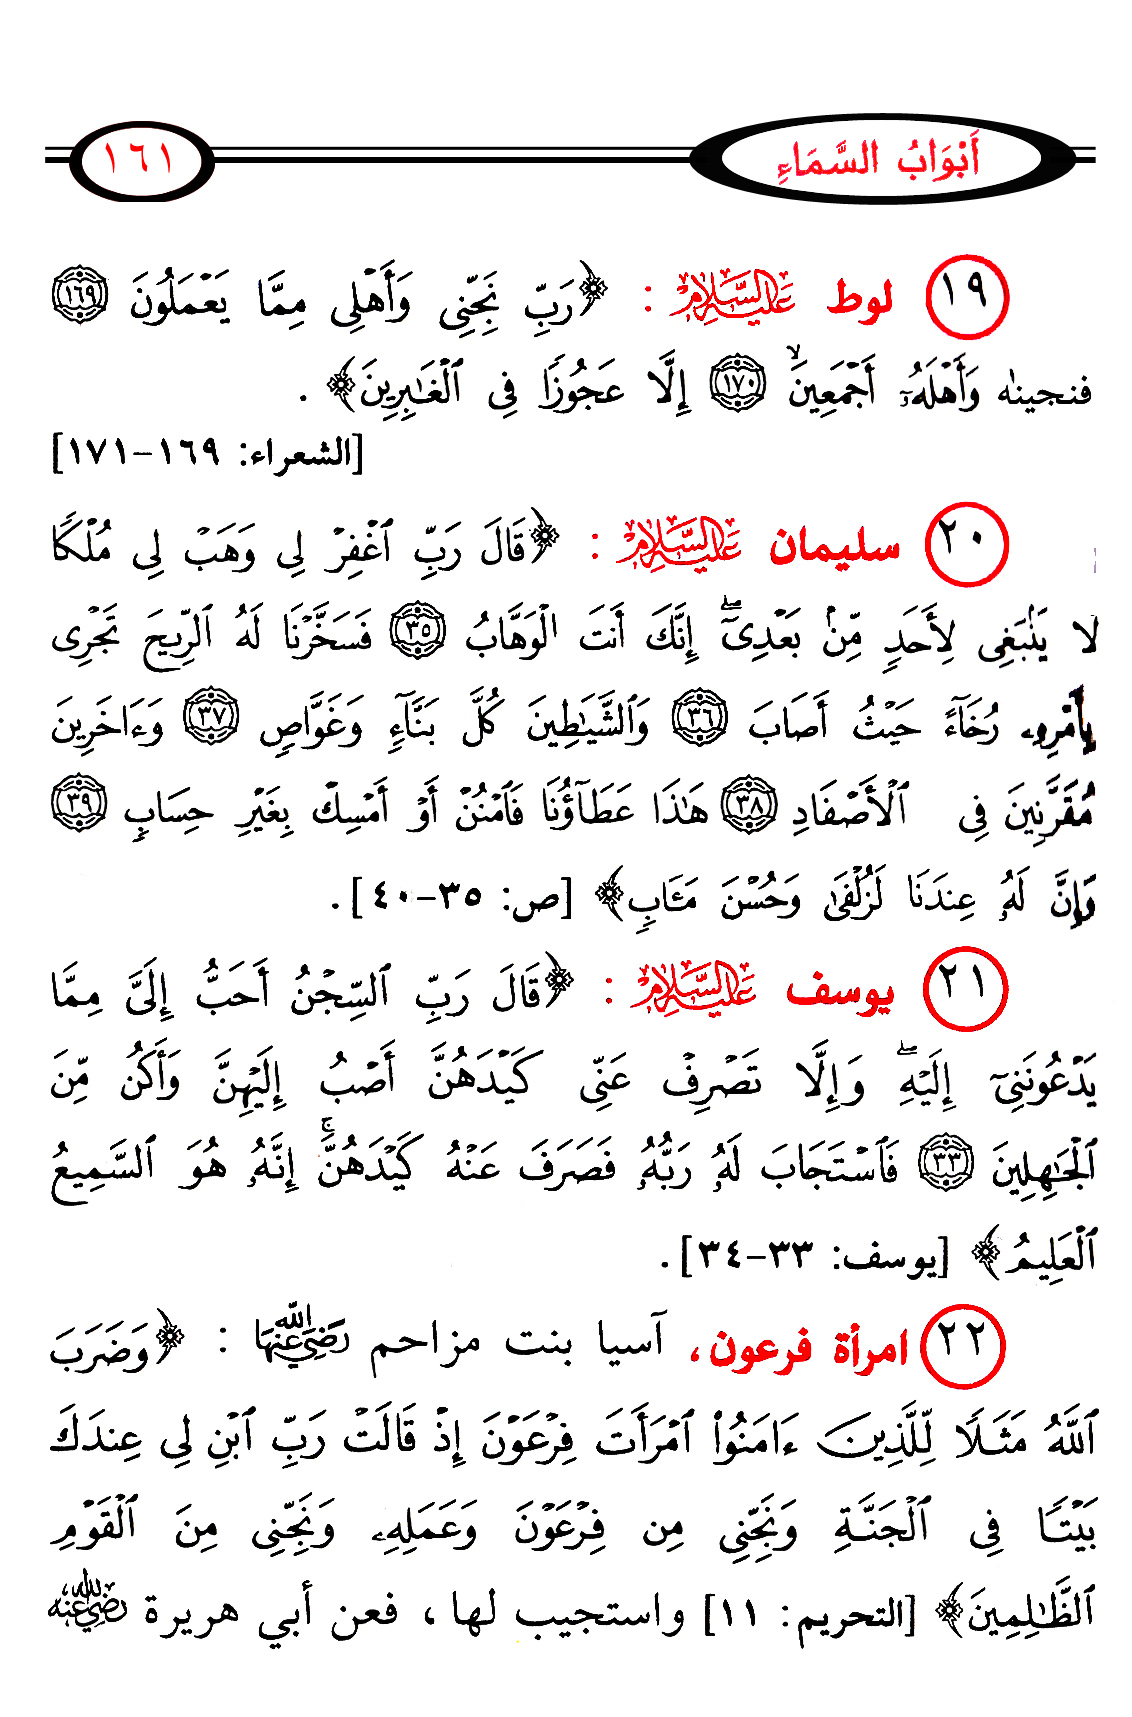 أَبْوَابُ السَّمَاءِ
١٦١
١٩ لوط عَلَيْهِ السَّلَامُ : ﴿رَبِّ نَجِّنِى وَأَهْلِى مِمَّا يَعْمَلُونَ ١٦٩
فنجينٰه وَأَهْلَهُۥٓ أَجْمَعِينَۙ ١٧٠ إِلَّا عَجُوزًا فِى ٱلْغَٰبِرِينَ﴾ .
[الشعراء: ١٦٩-١٧١]
٢٠ سليمان عَلَيْهِ السَّلَامُ : ﴿قَالَ رَبِّ ٱغْفِرْ لِى وَهَبْ لِى مُلْكًا
لا يَنۢبَغِى لِأَحَدٍ مِّنۢ بَعْدِىٓۖ إِنَّكَ أَنتَ الْوَهَّابُ ٣٥ فَسَخَّرْنَا لَهُ ٱلرِّيحَ تَجْرِى
بِأَمْرِهِۦ رُخَآءً حَيْثُ أَصَابَ ٣٦ وَٱلشَّيَٰطِينَ كُلَّ بَنَّآءٍ وَغَوَّاصٍ ٣٧ وَءَاخَرِينَ
مُقَرَّنِينَ فِى ٱلْأَصْفَادِ ٣٨ هَٰذَا عَطَآؤُنَا فَٱمْنُنْ أَوْ أَمْسِكْ بِغَيْرِ حِسَابٍ ٣٩
وَإِنَّ لَهُۥ عِندَنَا لَزُلْفَىٰ وَحُسْنَ مَـَٔابٍ﴾ [ص: ٣٥-٤٠].
٢١ يوسف عَلَيْهِ السَّلَامُ : ﴿قَالَ رَبِّ ٱلسِّجْنُ أَحَبُّ إِلَىَّ مِمَّا
يَدْعُونَنِىٓ إِلَيْهِۖ وَإِلَّا تَصْرِفْ عَنِّى كَيْدَهُنَّ أَصْبُ إِلَيْهِنَّ وَأَكُن مِّنَ
ٱلْجَٰهِلِينَ ٣٣ فَٱسْتَجَابَ لَهُۥ رَبُّهُۥ فَصَرَفَ عَنْهُ كَيْدَهُنَّۚ إِنَّهُۥ هُوَ ٱلسَّمِيعُ
ٱلْعَلِيمُ﴾ [يوسف: ٣٣-٣٤].
٢٢ امرأة فرعون، آسيا بنت مزاحم رَضِيَ اللَّهُ عَنْهَا : ﴿وَضَرَبَ
ٱللَّهُ مَثَلًا لِّلَّذِينَ ءَامَنُوا۟ ٱمْرَأَتَ فِرْعَوْنَ إِذْ قَالَتْ رَبِّ ٱبْنِ لِى عِندَكَ
بَيْتًا فِى ٱلْجَنَّةِ وَنَجِّنِى مِن فِرْعَوْنَ وَعَمَلِهِۦ وَنَجِّنِى مِنَ ٱلْقَوْمِ
ٱلظَّٰلِمِينَ﴾ [التحريم: ١١] واستجيب لها، فعن أبي هريرة رَضِيَ اللَّهُ عَنْهُ